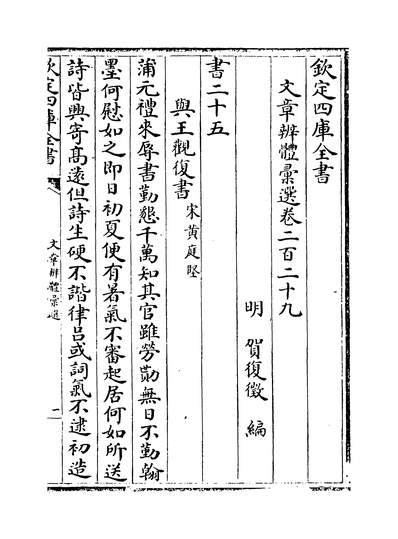 欽定四庫全書
文章辨體彚選卷二百二十九
明　賀復徵　編
書二十五
與王觀復書宋黃庭堅
蒲元禮來辱書勤懇千萬知其官雖勞勩無日不勤翰
墨何慰如之即日初夏便有暑氣不審起居何如所送
詩皆興寄髙遠但詩生硬不諧律吕或詞氣不逮初造
欽定四庫全書
文章辨體彚選
一